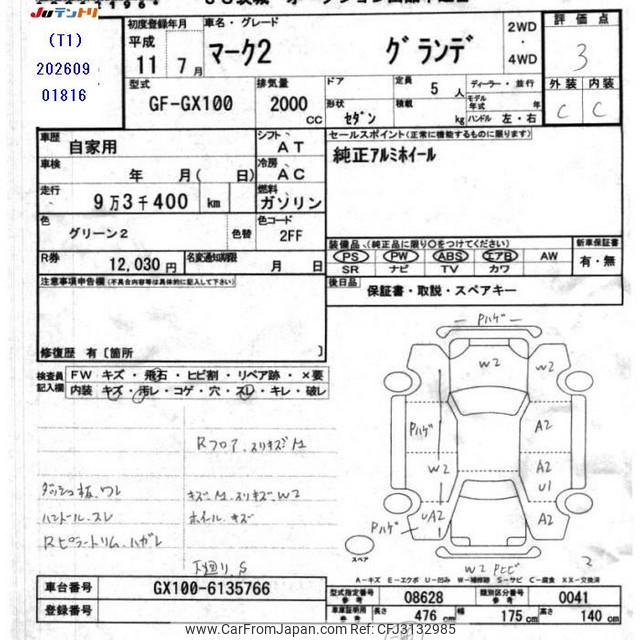 Juテントリ
(T1)
202609
01816
初度登録年月
平成
11 7月
車名・グレード
マーク2 グランデ
2WD
・
4WD
評価点
3
外装 内装
C C
型式
GF-GX100
排気量
2000 cc
ドア
形状 セダン
定員 5 人
積載 kg
ディーラー・並行
モデル年式 年
ハンドル 左・右
車歴 自家用
シフト AT
車検 年 月 ( 日)
冷房 AC
走行 9万3千400 km
燃料 ガソリン
色 グリーン2 色替
色コード 2FF
R券 12,030円
名変通知期限 月 日
セールスポイント(正常に機能するものに限ります)
純正アルミホイール
装備品、(純正品に限り○をつけてください)
PS PW ABS エアB AW
SR ナビ TV カワ
新車保証書
有・無
後日品 保証書・取説・スペアキー
注意事項申告欄(不具合内容等は具体的に記入して下さい)
修復歴 有[箇所 ]
検査員記入欄
FW キズ・飛石・ヒビ割・リペア跡・×要
内装 キズ・汚レ・コゲ・穴・スレ・キレ・破レ
Rフロア.スリキズM
ダッシュ板.ワレ
キズM.スリキズW2
ハンドル.スレ
ホイール.キズ
Rピラートリム.ハガレ
下廻り.S
Pハゲ
W2
W2
Pハゲ
A2
W2
A2
U1
UA2
A2
Pハゲ
スペア
W2 Pとび
2
A－キズ E－エクボ U－凹み W－補修跡 S－サビ C－腐食 XX－交換済
車台番号 GX100-6135766
登録番号
型式指定番号 参考 08628
類別区分番号 参考 0041
車庫証明用 参考 長さ 476 cm 幅 175 cm 高さ 140 cm
www.CarFromJapan.com Ref: CFJ3132985